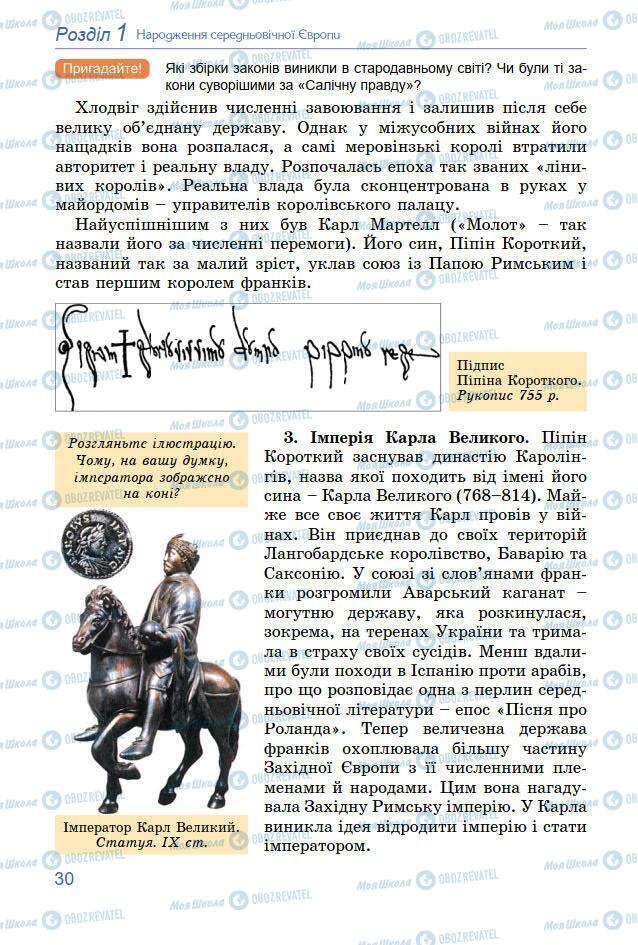 Розділ 1 Народження середньовічної Європи
Пригадайте! Які збірки законів виникли в стародавньому світі? Чи були ті за-
кони суворішими за «Салічну правду»?
Хлодвіг здійснив численні завоювання і залишив після себе
велику об’єднану державу. Однак у міжусобних війнах його
нащадків вона розпалася, а самі меровінзькі королі втратили
авторитет і реальну владу. Розпочалась епоха так званих «ліни-
вих королів». Реальна влада була сконцентрована в руках у
майордомів – управителів королівського палацу.
Найуспішнішим з них був Карл Мартелл («Молот» – так
назвали його за численні перемоги). Його син, Піпін Короткий,
названий так за малий зріст, уклав союз із Папою Римським і
став першим королем франків.
Підпис
Піпіна Короткого.
Рукопис 755 р.
Розгляньте ілюстрацію.
Чому, на вашу думку,
імператора зображено
на коні?
Імператор Карл Великий.
Статуя. IX ст.
3. Імперія Карла Великого. Піпін
Короткий заснував династію Каролін-
гів, назва якої походить від імені його
сина – Карла Великого (768–814). Май-
же все своє життя Карл провів у вій-
нах. Він приєднав до своїх територій
Лангобардське королівство, Баварію та
Саксонію. У союзі зі слов’янами фран-
ки розгромили Аварський каганат –
могутню державу, яка розкинулася,
зокрема, на теренах України та трима-
ла в страху своїх сусідів. Менш вдали-
ми були походи в Іспанію проти арабів,
про що розповідає одна з перлин серед-
ньовічної літератури – епос «Пісня про
Роланда». Тепер величезна держава
франків охоплювала більшу частину
Західної Європи з її численними пле-
менами й народами. Цим вона нагаду-
вала Західну Римську імперію. У Карла
виникла ідея відродити імперію і стати
імператором.
30
МояШкола OBOZREVATEL